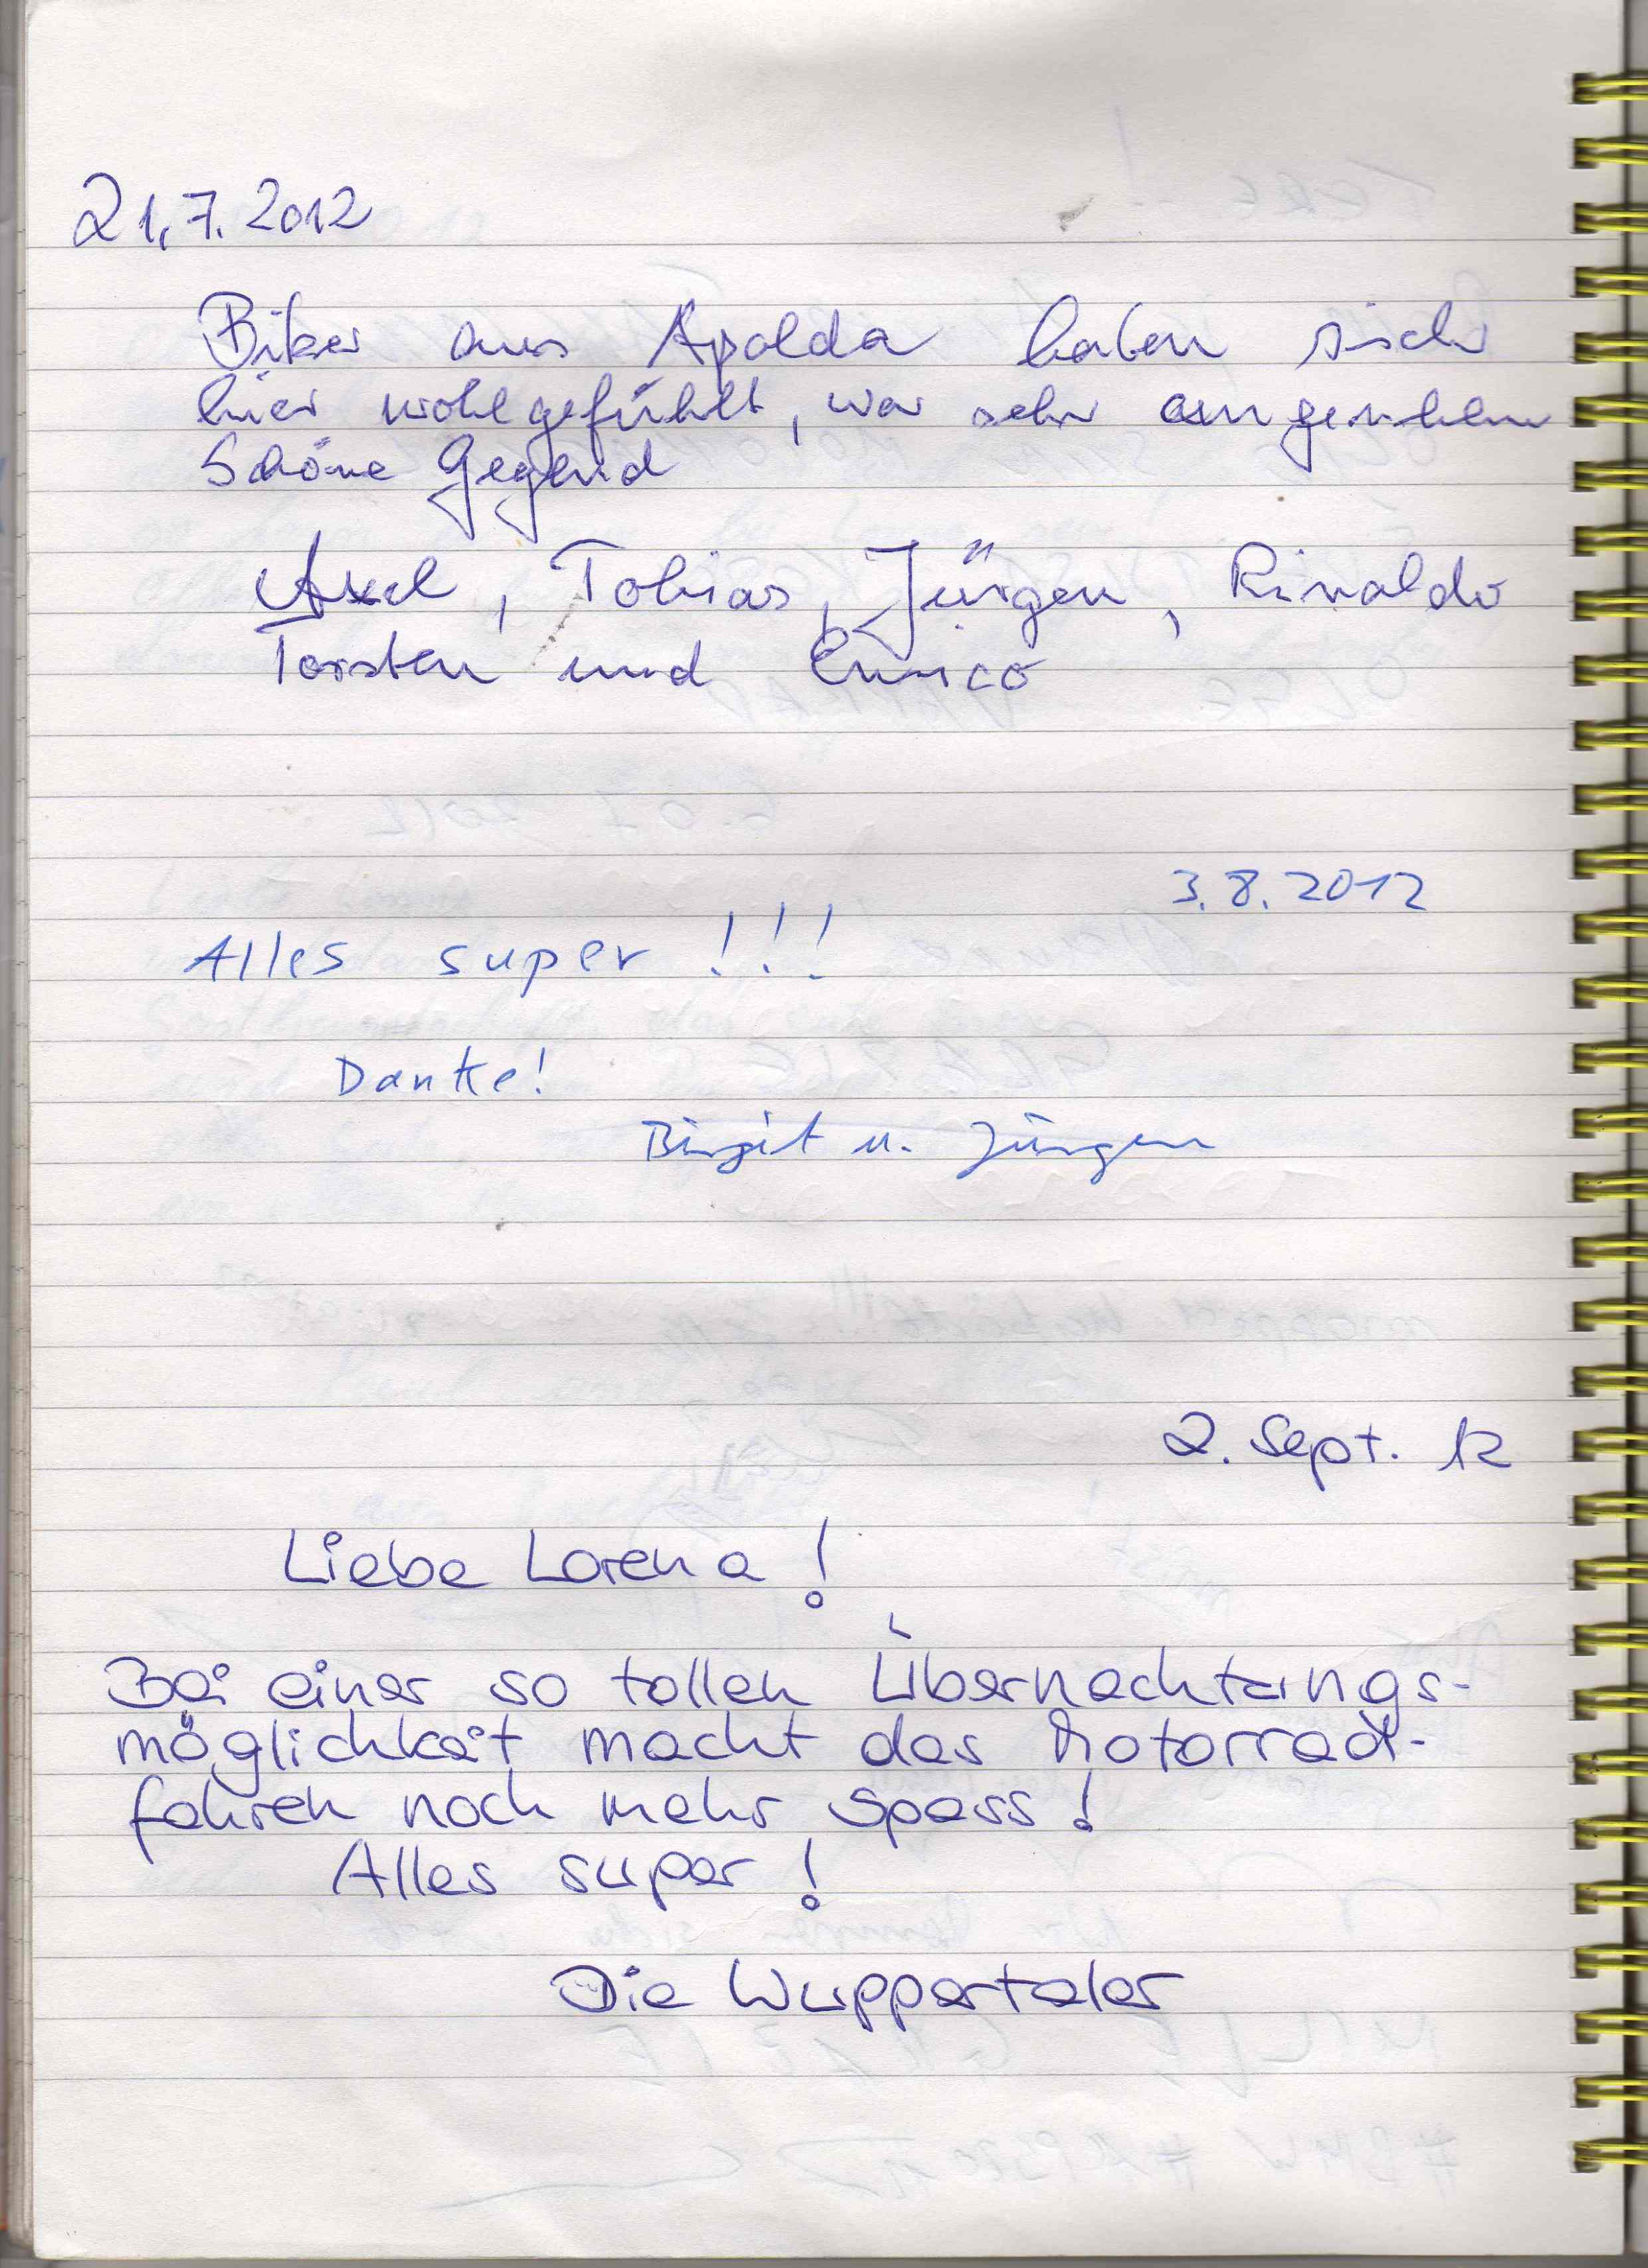 21,7.2012
Biker aus Apolda haben sich
hier wohlgefühlt, war sehr angenehm
Schöne Gegend
Axel, Tobias, Jürgen, Rinaldo
Torsten und Enrico
3.8.2012
Alles super!!!
Danke!
Birgit u. Jürgen
2. Sept. 12
Liebe Lorena!
Bei einer so tollen Übernachtungs-
möglichkeit macht das Motorrad-
fahren noch mehr Spass!
Alles super!
Die Wuppertaler